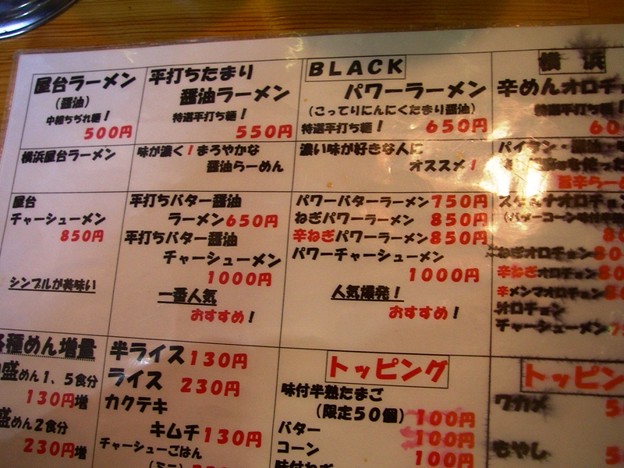 屋台ラーメン
(醤油)
中細ちぢれ麺!
500円
平打ちたまり
醤油ラーメン
特選平打ち麺!
550円
BLACK
パワーラーメン
(こってりにんにくたまり醤油)
特選平打ち麺!
650円
横浜
辛めんオロチョ
特選平打ち
横浜屋台ラーメン
味が濃く!まろやかな
醤油らーめん
濃い味が好きな人に
オススメ!
パイタン・醤油
旨辛らー
屋台
チャーシューメン
850円
シンプルが美味い
平打ちバター醤油
ラーメン650円
平打ちバター醤油
チャーシューメン
1000円
一番人気
おすすめ!
パワーバターラーメン750円
ねぎパワーラーメン 850円
辛ねぎパワーラーメン850円
パワーチャーシューメン
1000円
人気爆発!
おすすめ!
スタミナオロチョン
(バターコーン味付半
ねぎオロチョン
辛ねぎオロチョン
辛メンマオロチョン
オロチョン
チャーシューメン
種めん増量
盛めん1、5食分
130円増
盛めん2食分
230円増
半ライス130円
ライス 230円
カクテキ
キムチ130円
チャーシューごはん
トッピング
味付半熟たまご
(限定50個) 100円
バター 100円
コーン 100円
味付ねぎ
トッピン
ワカメ
もやし